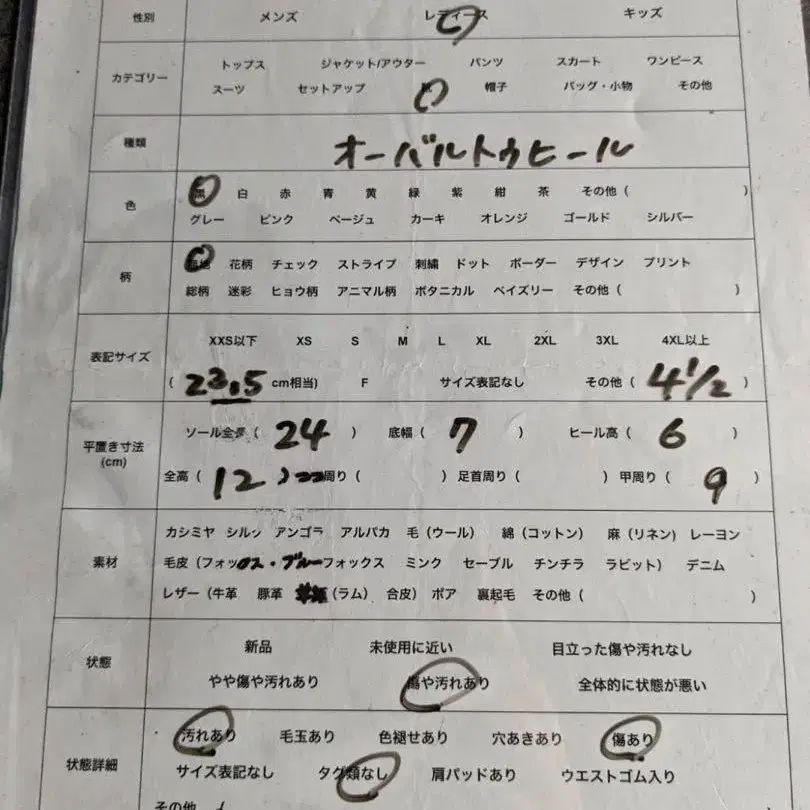 性別 メンズ レディース キッズ
カテゴリー
トップス ジャケット/アウター パンツ スカート ワンピース
スーツ セットアップ 帽子 バッグ・小物 その他
種類 オーバルトゥヒール
色
黒 白 赤 青 黄 緑 紫 紺 茶 その他 ( )
グレー ピンク ベージュ カーキ オレンジ ゴールド シルバー
柄
無地 花柄 チェック ストライプ 刺繍 ドット ボーダー デザイン プリント
総柄 迷彩 ヒョウ柄 アニマル柄 ボタニカル ペイズリー その他 ( )
表記サイズ
XXS以下 XS S M L XL 2XL 3XL 4XL以上
( 23.5 cm相当) F サイズ表記なし その他 ( 4 1/2 )
平置き寸法
(cm)
ソール全長 ( 24 ) 底幅 ( 7 ) ヒール高 ( 6 )
全高 ( 12 ) 周り ( ) 足首周り ( ) 甲周り ( 9 )
素材
カシミヤ シルク アンゴラ アルパカ 毛 (ウール) 綿 (コットン) 麻 (リネン) レーヨン
毛皮 (フォックス・ブルーフォックス ミンク セーブル チンチラ ラビット) デニム
レザー (牛革 豚革 (ラム) 合皮) ボア 裏起毛 その他 ( )
状態
新品 未使用に近い 目立った傷や汚れなし
やや傷や汚れあり 傷や汚れあり 全体的に状態が悪い
状態詳細
汚れあり 毛玉あり 色褪せあり 穴あきあり 傷あり
サイズ表記なし タグ類なし 肩パッドあり ウエストゴム入り
その他 (